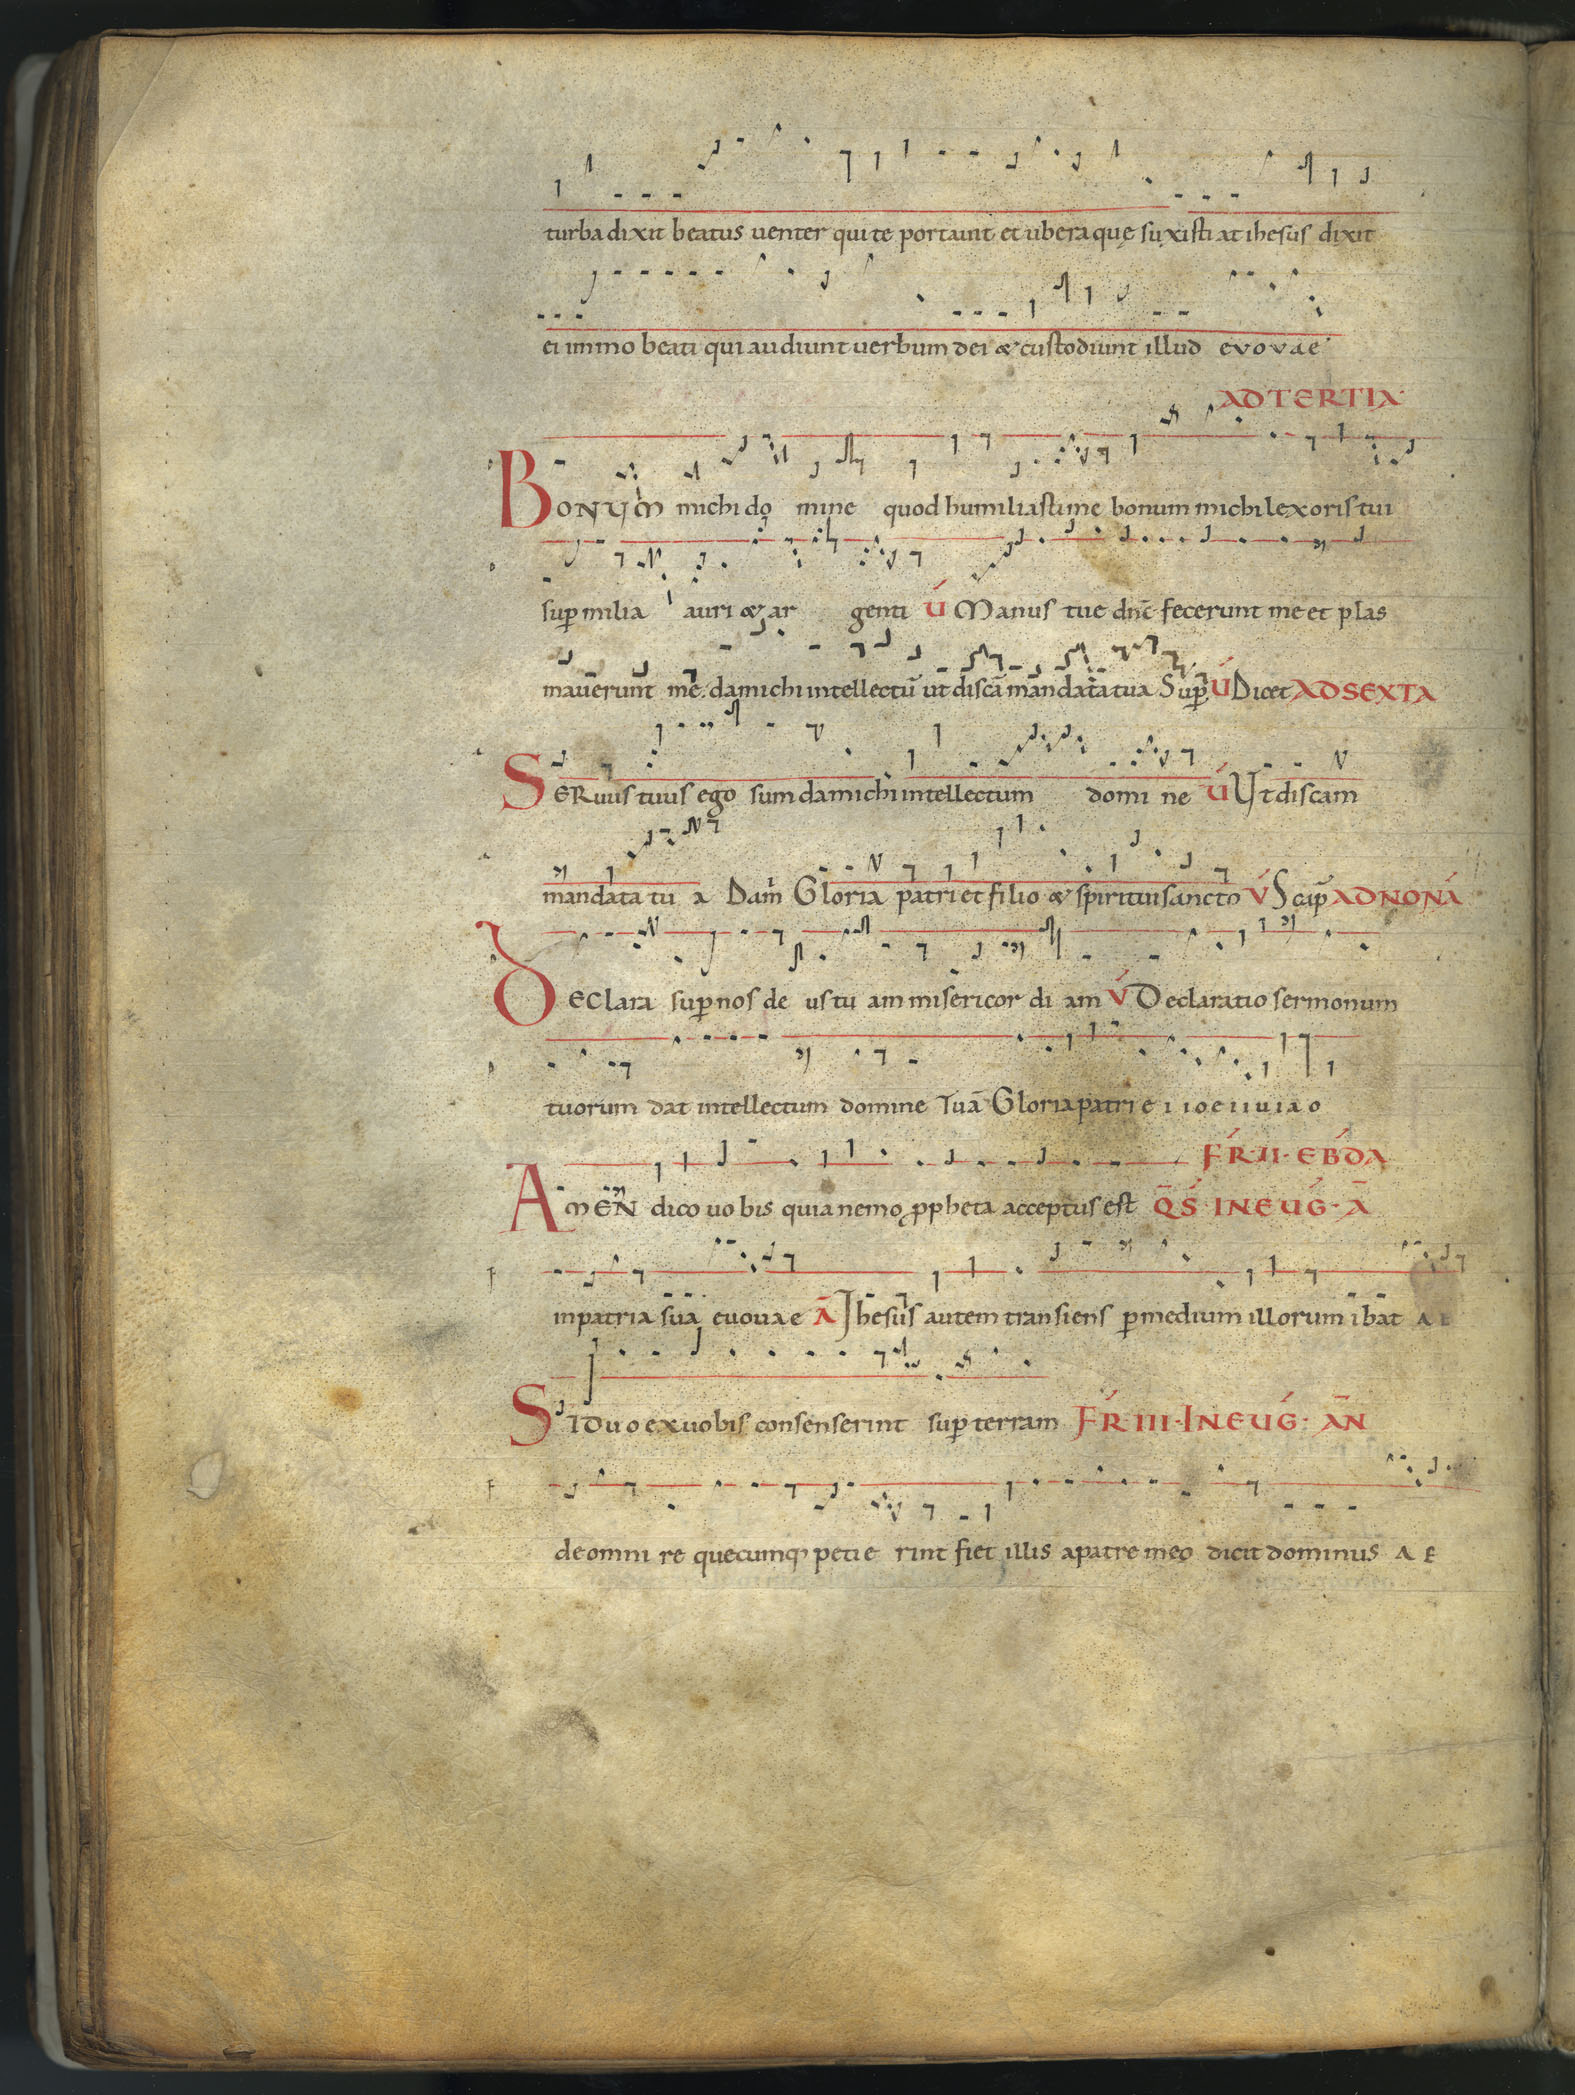 turba dixit beatus uenter qui te portauit et ubera quę suxisti at ihesus dixit
ei immo beati qui audiunt uerbum dei & custodiunt illud evovae
AD TERTIA
BONUM michi do mine quod humiliasti me bonum michi lex oris tui
sup̄ milia auri & ar genti V́ Manus tue dn̄e fecerunt me et plas
mauerunt me. da michi intellectū ut discā mandata tua Sup̄ V́ Dicet AD SEXTA
SERuus tuus ego sum da michi intellectum domi ne V́ Ut discam
mandata tu a Dam̄ Gloria patri et filio & spiritui sancto V́ Scap̄ AD NONĀ
DEClara sup̄ nos de us tu am misericor di am V́ Declaratio sermonum
tuorum dat intellectum domine Tuā Gloria patri e i i o e i i u i a o
FR̄ II · EB́DA
AMEN dico uobis quia nemo ꝓpheta acceptus est Q̄S · IN EUḠ · Ā
in patria sua euouae Ā Ihesus autem transiens p̄ medium illorum ibat A E
SI duo ex uobis consenserint sup̄ terram FR̄ · III · IN EUḠ · ĀN
de omni re quecumq; petie rint fiet illis a patre meo dicit dominus A E